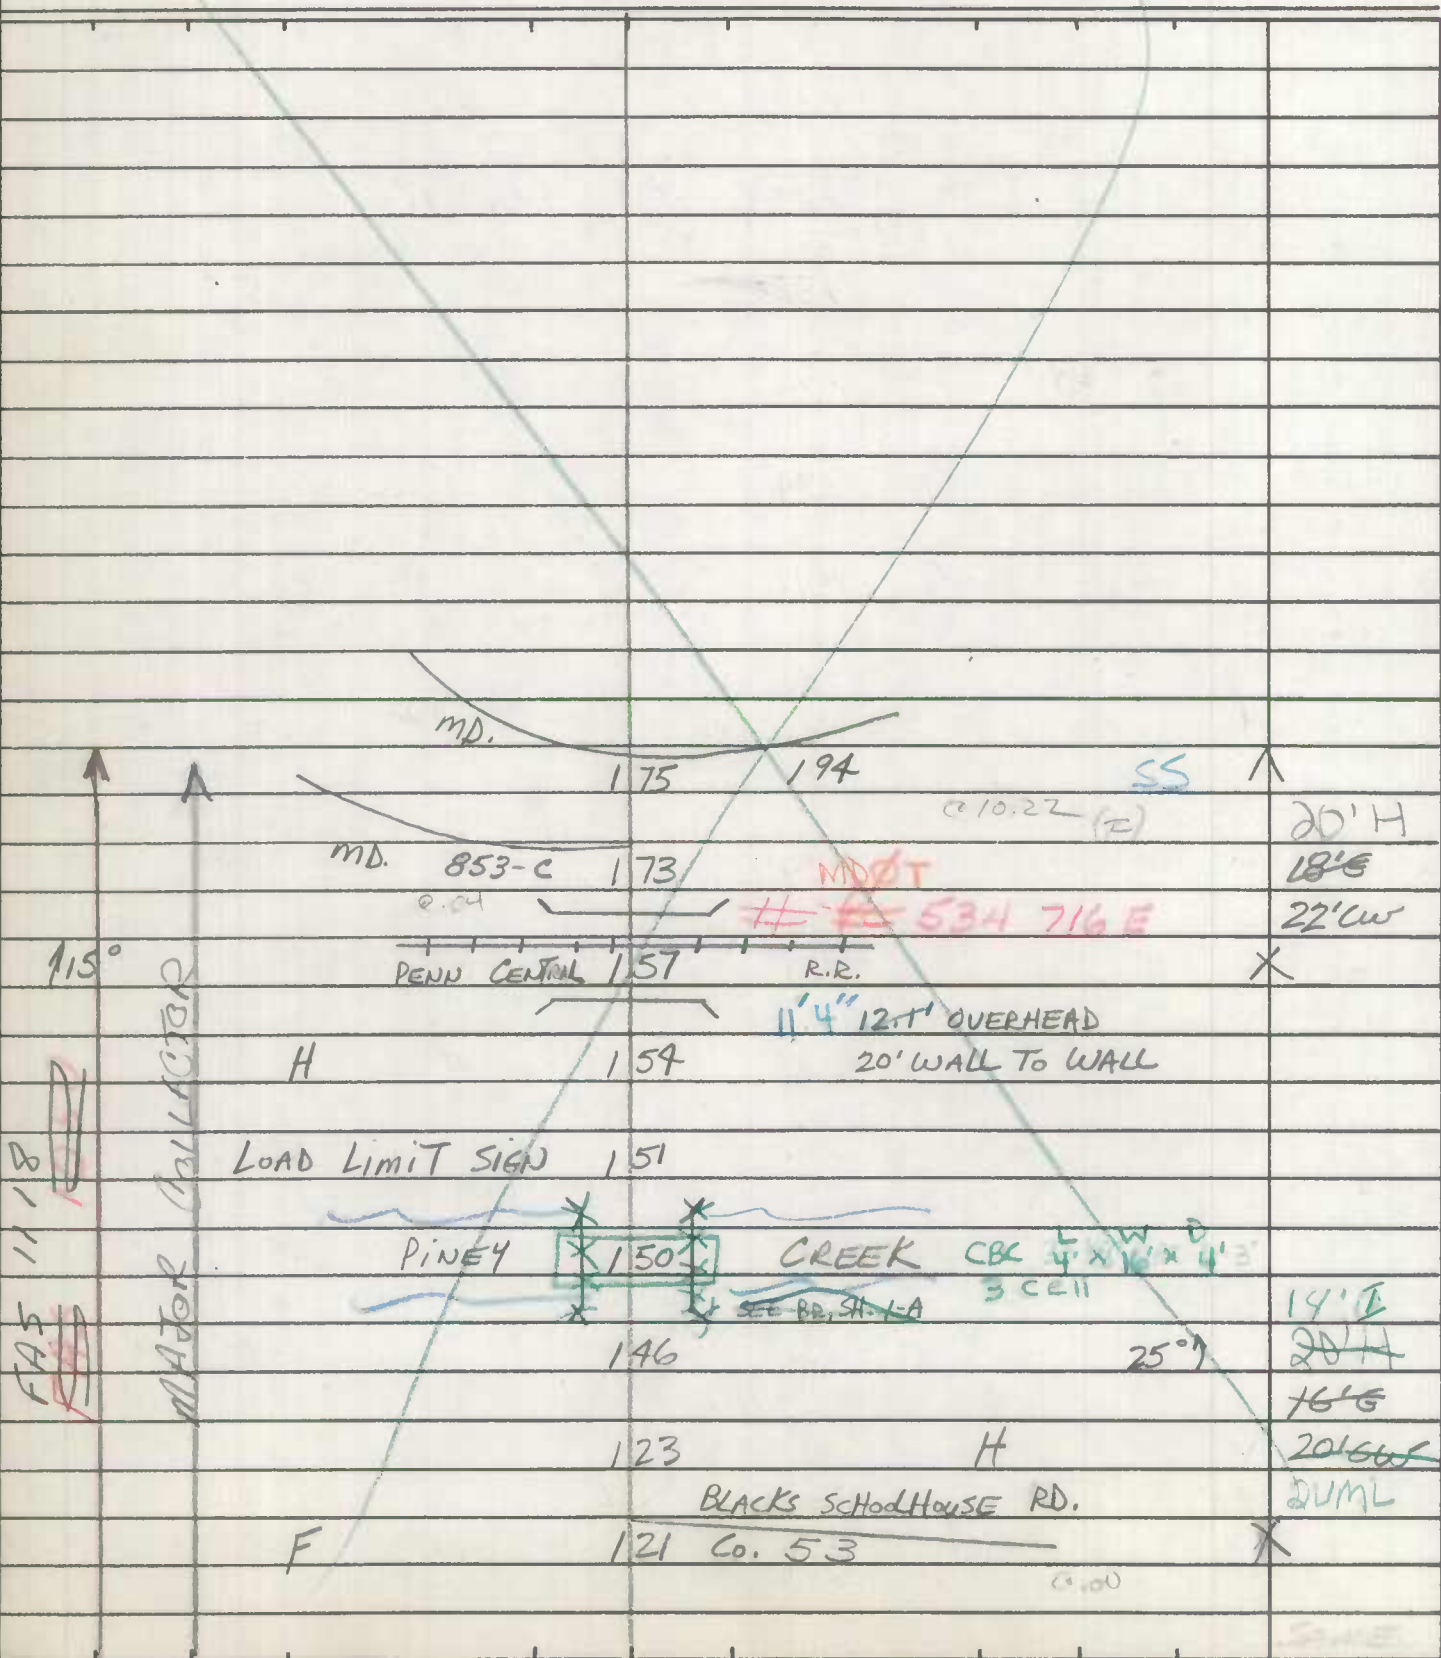 MD.
1 75 194 SS
@ 10.22 (I) 20' H
MD. 853-C 1 73 MDØT 18' G
@ .04 # 534 716 E 22' CW
15°
PENN CENTRAL 1 57 R.R. X
11' 4" OVERHEAD
H 1 54 20' WALL TO WALL
LOAD LIMIT SIGN 1 51
L W D
PINEY 1 50 CREEK CBC 4' x 16' x 4'
3 CELL
SEE BR, SH. 1-A 14' I
1 46 25° 20' H
16' G
1 23 H 20' GW
BLACKS SCHOOLHOUSE RD. 2UML
F 1 21 Co. 53 X
@ .00
SAME
FAS 1118
MAJOR COLLACTOR